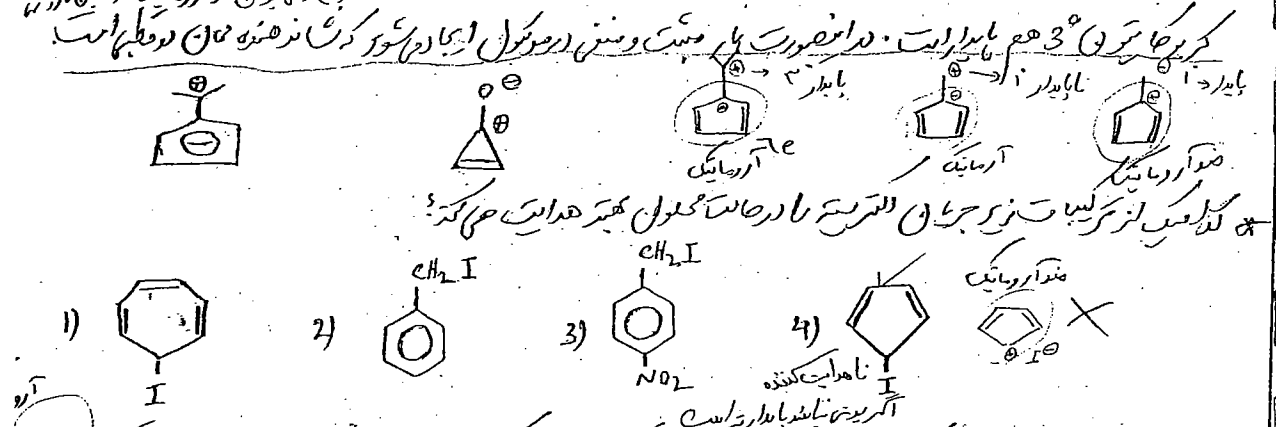 کربوکاتیون 3° هم پایدار است. در اینصورت بار مثبت و منفی در مولکول ایجاد می‌شود که نشاندهنده ممان دوقطبی است.
پایدار ۳
ناپایدار ۱
پایدار
آروماتیک 6e
آروماتیک
ضد آروماتیک
* کدامیک از ترکیبات زیر جریان الکتریسته را در حالت محلول بهتر هدایت می‌کند؟
CH2 I
CH2 I
ضد آروماتیک
1)
2)
3)
4)
I
NO2
I
نا هدایت کننده
اگر یونی نباشد پایدارتر است